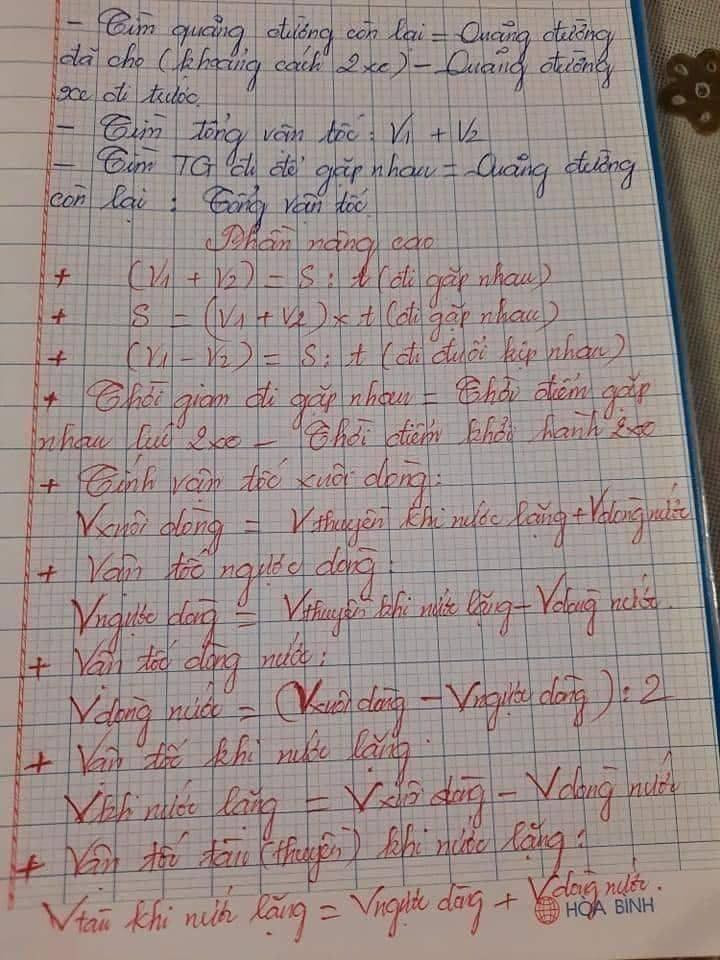 - Tìm quảng đường còn lại = Quảng đường
đã cho (khoảng cách 2 xe) - Quảng đường
xe đi trước.
- Tìm tổng vân tốc: V1 + V2
- Tìm TG đi để gặp nhau = Quảng đường
còn lại : Tổng vận tốc
Phần nâng cao
+ (V1 + V2) = S : t (đi gặp nhau)
+ S = (V1 + V2) x t (đi gặp nhau)
+ (V1 - V2) = S : t (đi đuổi kịp nhau)
+ Thời gian đi gặp nhau = Thời điểm gặp
nhau lúc 2 xe - Thời điểm khởi hành 2 xe
+ Tính vận tốc xuôi dòng:
Vxuôi dòng = Vthuyền khi nước lặng + Vdòng nước
+ Vân tốc ngược dòng:
Vngược dòng = Vthuyền khi nước lặng - Vdòng nước.
+ Vân tốc dòng nước:
Vdòng nước = (Vxuôi dòng - Vngược dòng) : 2
+ Vân tốc khi nước lặng:
Vkhi nước lặng = Vxuôi dòng - Vdòng nước
+ Vân tốc tàu (thuyền) khi nước lặng:
Vtàu khi nước lặng = Vngược dòng + Vdòng nước.
HÒA BÌNH